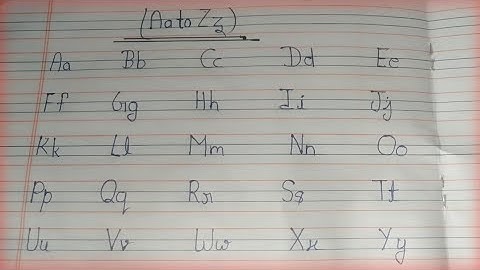 (Aa to Zz)
Aa Bb Cc Dd Ee
Ff Gg Hh Ii Jj
Kk Ll Mm Nn Oo
Pp Qq Rr Ss Tt
Uu Vv Ww Xx Yy